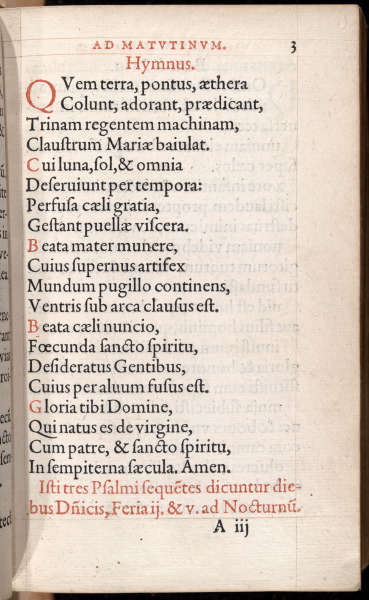 AD MATVTINVM. 3
Hymnus.
QVem terra, pontus, æthera
Colunt, adorant, prædicant,
Trinam regentem machinam,
Clauſtrum Mariæ baiulat.
Cui luna, ſol, & omnia
Deſeruiunt per tempora:
Perfuſa cæli gratia,
Geſtant puellæ viſcera.
Beata mater munere,
Cuius ſupernus artifex
Mundum pugillo continens,
Ventris ſub arca clauſus eſt.
Beata cæli nuncio,
Fœcunda ſancto ſpiritu,
Deſideratus Gentibus,
Cuius per aluum fuſus eſt.
Gloria tibi Domine,
Qui natus es de virgine,
Cum patre, & ſancto ſpiritu,
In ſempiterna ſæcula. Amen.
Iſti tres Pſalmi ſequẽtes dicuntur die-
bus Dñicis, Feria ij. & v. ad Nocturnũ.
A iij